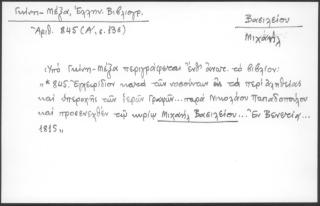 Γκίνη-Μέξα, Ἑλλην. Βιβλιογρ.
Ἀριθ. 845 (Α', σ. 136)
Βασιλείου
Μιχαήλ
Ὑπό Γκίνη-Μέξα περιγράφεται ἔνθ' ἀνωτ. τό βιβλίον:
"*845. Ἐγχειρίδιον κατά τῶν νοσούντων τά περί ἀληθείας
καί ὑπεροχῆς τῶν ἱερῶν Γραφῶν... παρά Νικολάου Παπαδοπούλου
καί προσενεχθέν τῷ κυρίῳ Μιχαήλ Βασιλείου... Ἐν Βενετίᾳ...
1815"